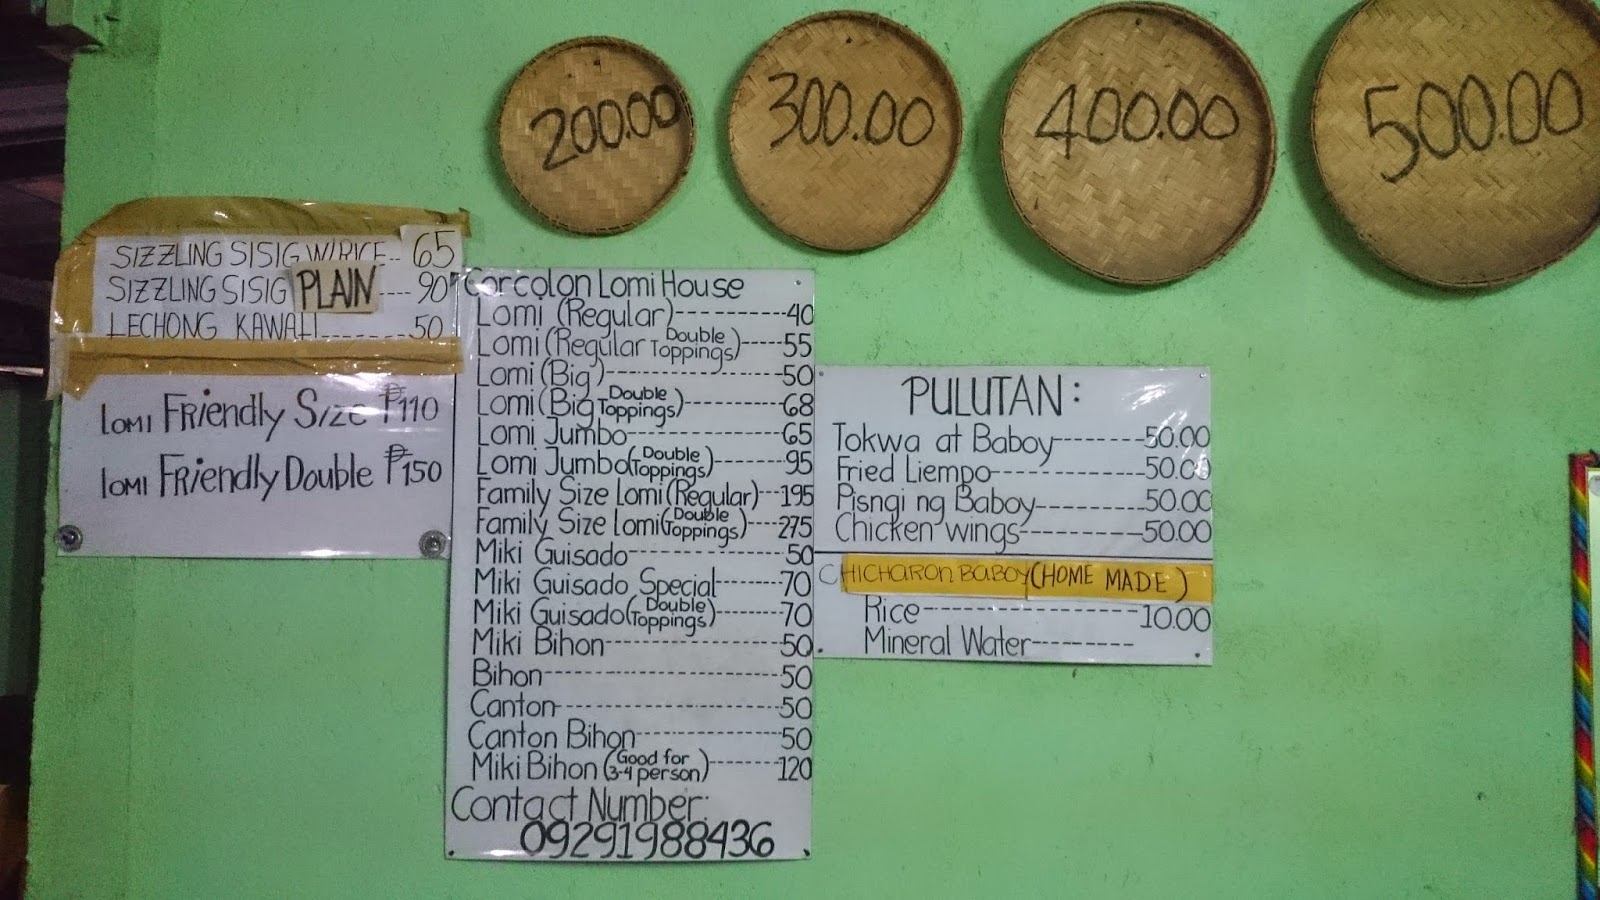 200.00
300.00
400.00
500.00
SIZZLING SISIG W/RICE-- 65
SIZZLING SISIG PLAIN --- 90
LECHONG KAWALI------- 50
LOMI FRiendly Size ₱110
LOMI FRiendly Double ₱150
Corcolon Lomi House
Lomi (Regular)----------40
Lomi (Regular Double Toppings)----55
Lomi (Big)----------50
Lomi (Big Double Toppings)-------68
Lomi Jumbo----------65
Lomi Jumbo (Double Toppings)------95
Family Size Lomi (Regular)--195
Family Size Lomi (Double Toppings)---275
Miki Guisado----------50
Miki Guisado Special------70
Miki Guisado (Double Toppings)------70
Miki Bihon----------50
Bihon----------50
Canton----------50
Canton Bihon----------50
Miki Bihon (Good for 3-4 person)------120
Contact Number:
09291988436
PULUTAN:
Tokwa at Baboy-------50.00
Fried Liempo----------50.00
Pisngi ng Baboy-------50.00
Chicken wings--------50.00
CHICHARON BABOY (HOME MADE)
Rice----------10.00
Mineral Water--------